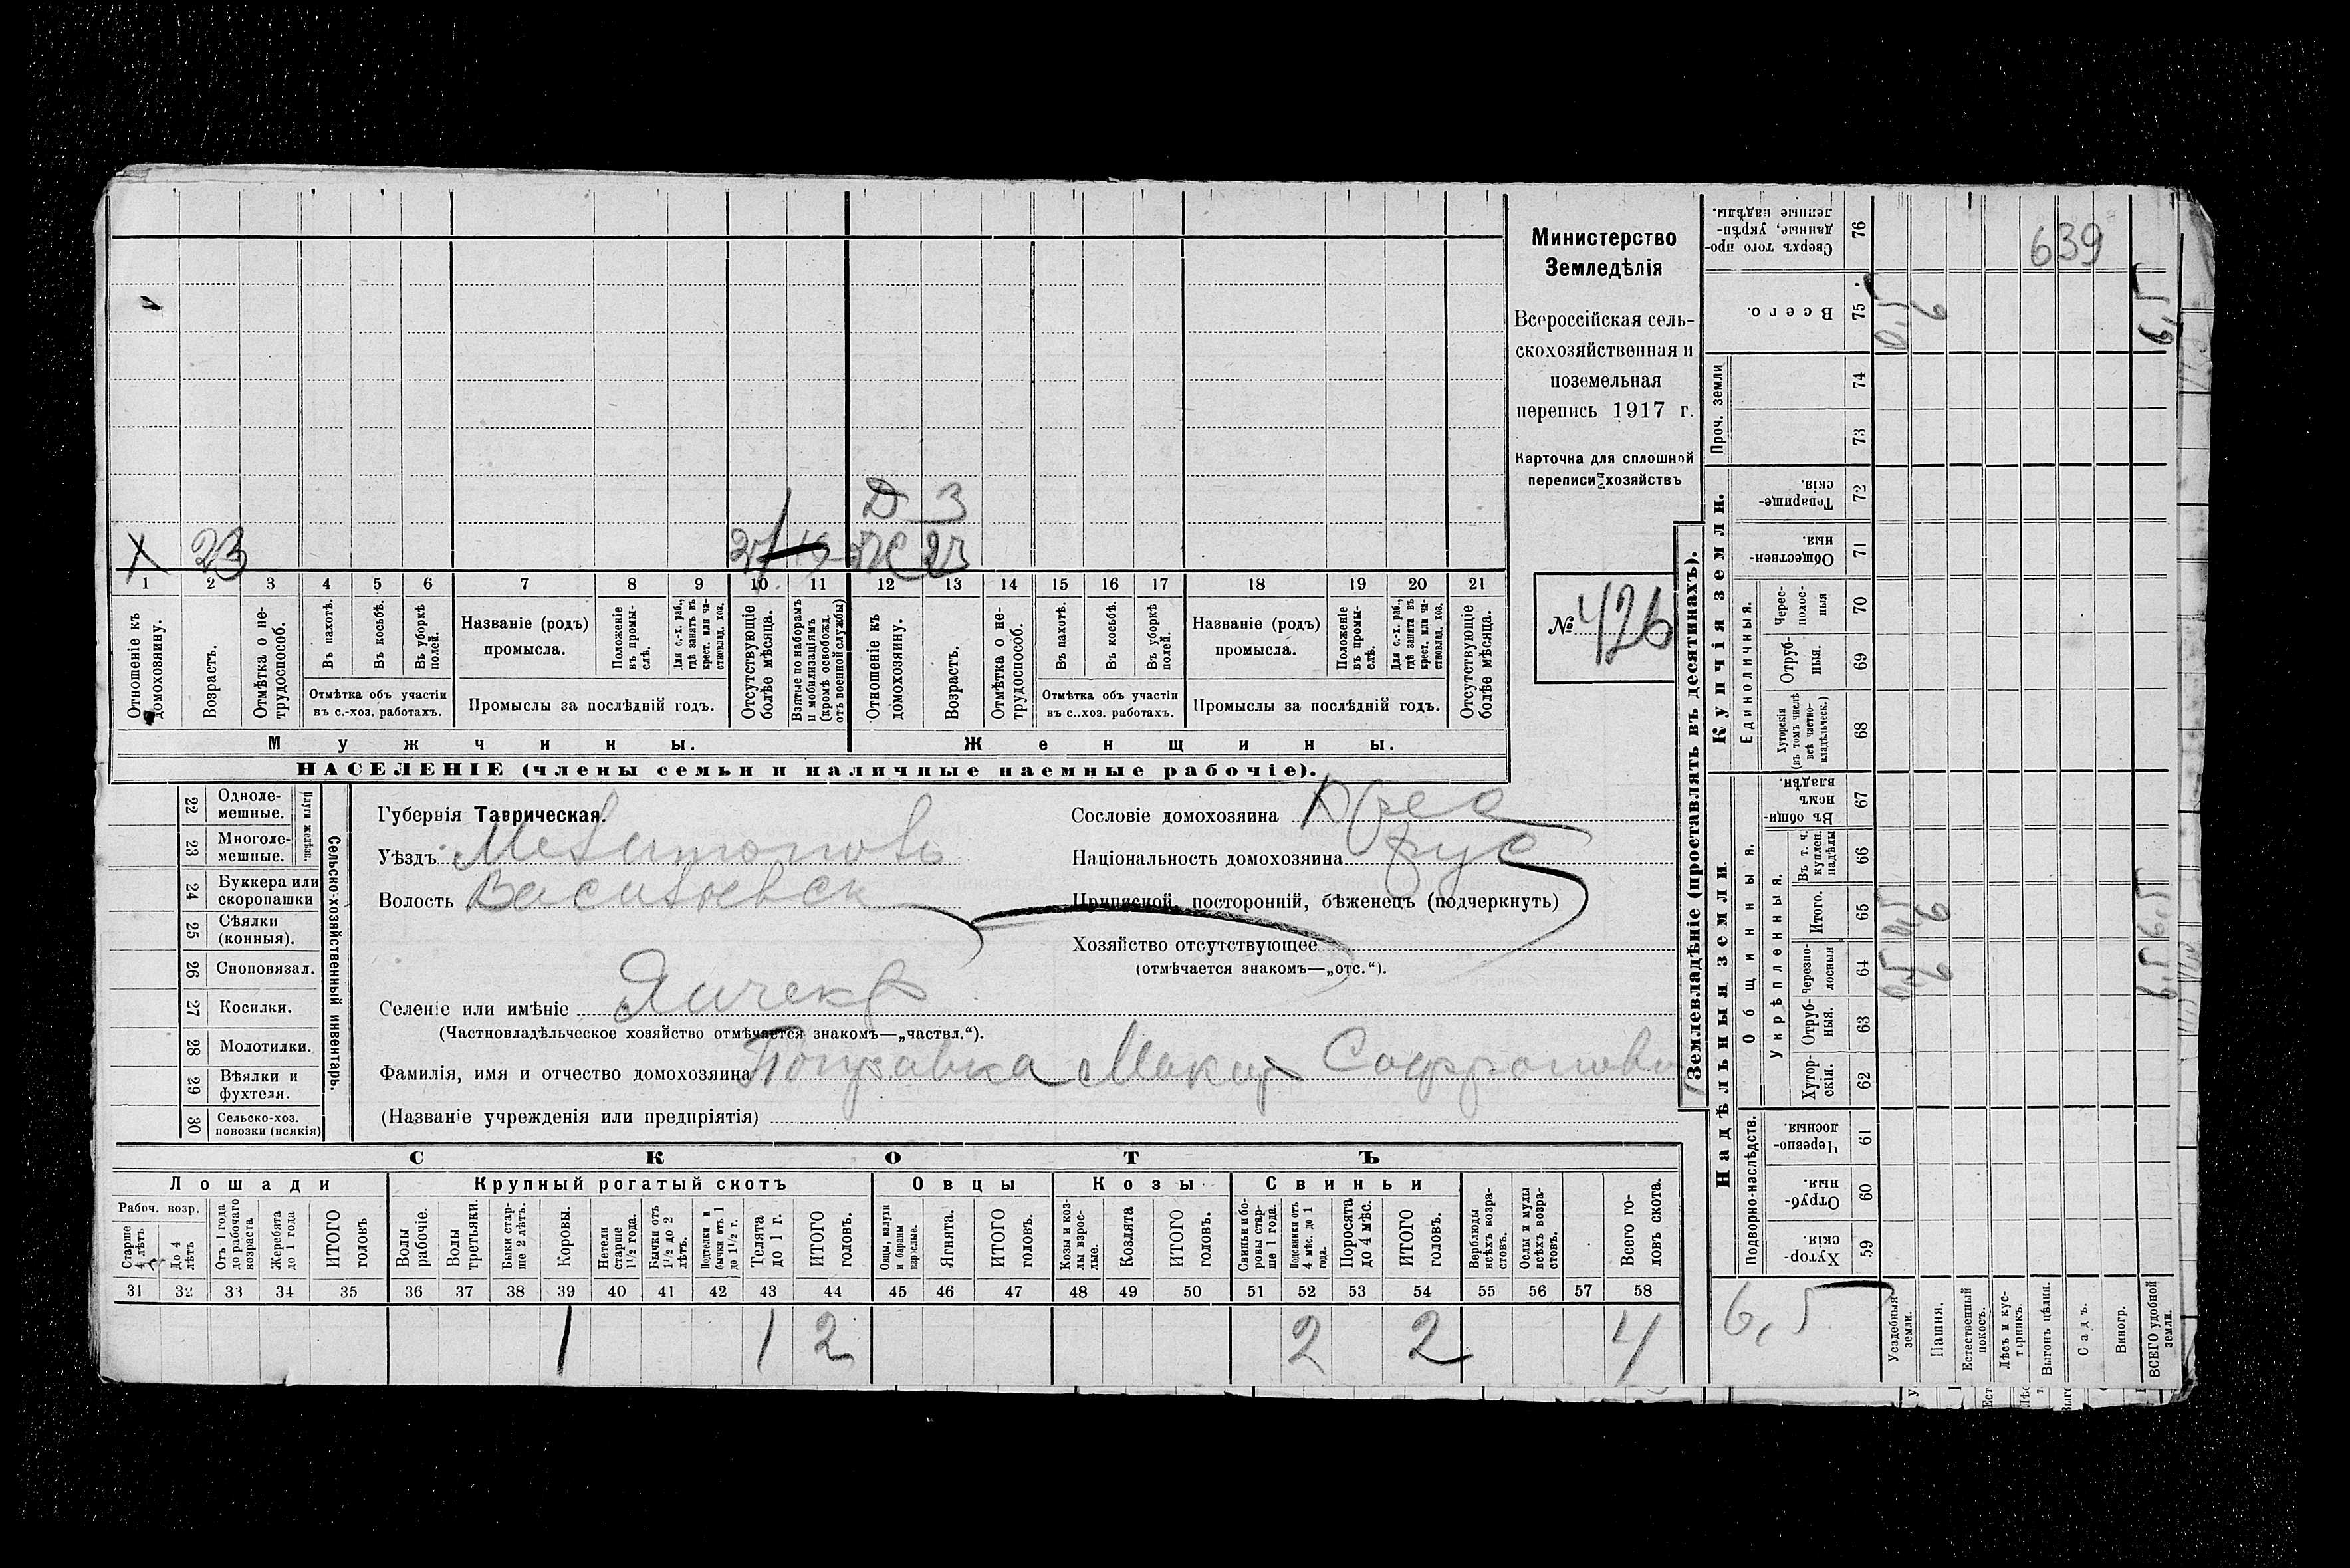 639
Министерство
Земледѣлія
Всероссійская сель-
скохозяйственная и
поземельная
перепись 1917 г.
Карточка для сплошной
переписи хозяйствъ
№ 426
Д 3
Х 23 Ж 23
1 2 3 4 5 6 7 8 9 10 11 12 13 14 15 16 17 18 19 20 21
Отношеніе къ домохозяину.
Возрастъ.
Отмѣтка о не-трудоспособ.
Въ пахотѣ.
Въ косьбѣ.
Въ уборкѣ полей.
Отмѣтка объ участіи
въ с.-хоз. работахъ.
Названіе (родъ)
промысла.
Положеніе въ промы-слѣ.
Для с.-х. раб., гдѣ занятъ въ крест. или ча-стновлад. хоз.
Промыслы за послѣдній годъ.
Отсутствующіе болѣе мѣсяца.
Взятые по наборамъ и мобилизаціямъ (кромѣ освобожд. отъ военной службы)
Отношеніе къ домохозяину.
Возрастъ.
Отмѣтка о не-трудоспособ.
Въ пахотѣ.
Въ косьбѣ.
Въ уборкѣ полей.
Отмѣтка объ участіи
въ с..хоз. работахъ.
Названіе (родъ)
промысла.
Положеніе въ промы-слѣ.
Для с.-х. раб., гдѣ занята въ крест. или ча-стновлад. хоз.
Промыслы за послѣдній годъ.
Отсутствующіе болѣе мѣсяца.
Мужчины. Женщины.
НАСЕЛЕНІЕ (члены семьи и наличные наемные рабочіе).
22 Одноле-мешные.
23 Многоле-мешные.
Плуги желѣзн.
24 Буккера или скоропашки
25 Сѣялки (конныя).
26 Сноповязал.
27 Косилки.
28 Молотилки.
29 Вѣялки и фухтеля.
30 Сельско-хоз. повозки (всякія)
Сельско-хозяйственный инвентарь.
Губернія Таврическая.
Уѣздъ
Волость Васильевск
Селеніе или имѣніе
(Частновладѣльческое хозяйство отмѣчается знакомъ—„частвл.“).
Фамилія, имя и отчество домохозяина Поправка Макар Софронови
(Названіе учрежденія или предпріятія)
Сословіе домохозяина Крес
Національность домохозяина рус
Приписной, посторонній, бѣженецъ (подчеркнуть)
Хозяйство отсутствующее
(отмѣчается знакомъ—„отс.“).
СКОТЪ
Лошади Крупный рогатый скотъ Овцы Козы Свиньи
Рабоч. возр.
Старше 4 лѣтъ
До 4 лѣтъ
Отъ 1 года до рабочаго возраста
Жеребята до 1 года
ИТОГО головъ
Волы рабочіе.
Волы третьяки.
Быки стар-ше 2 лѣтъ.
Коровы.
Нетели старше 1 1/2 года.
Бычки отъ 1 1/2 до 2 лѣтъ.
Подтелки и бычки отъ 1 до 1 1/2 г.
Телята до 1 г.
ИТОГО головъ.
Овцы, валухи и бараны взрослые.
Ягнята.
ИТОГО головъ.
Козы и коз-лы взрос-лые.
Козлята
ИТОГО головъ.
Свиньи и бо-ровы стар-ше 1 года.
Подсвинки отъ 4 мѣс. до 1 года.
Поросята до 4 мѣс.
ИТОГО головъ.
Верблюды всѣхъ возра-стовъ.
Ослы и мулы всѣхъ возра-стовъ.
Всего го-ловъ скота.
31 32 33 34 35 36 37 38 39 40 41 42 43 44 45 46 47 48 49 50 51 52 53 54 55 56 57 58
1 1 2 2 2 4
Землевладѣніе (проставлять въ десятинахъ).
Купчія земли.
Надѣльныя земли.
Сверхъ того про-данные, укрѣп-ленные надѣлы. 76
Всего. 75 0,5 6 6,5
Проч. земли 74 73
Товарище-скія. 72
Обществен-ныя. 71
Единоличныя.
Черес-полос-ныя 70
Отруб-ныя. 69
Хуторскія (въ томъ числѣ всѣ частно-владѣльческ.) 68
Общинныя.
Въ общи-номъ владѣн. 67
Укрѣпленныя.
Въ т. ч. куплен. надѣлы 66
Итого. 65 0,5 6 6,5
Черезпо-лосныя 64 0,5 6 6,5
Отруб-ныя. 63
Хутор-скія. 62
Подворно-наслѣдств.
Черезпо-лосныя. 61
Отруб-ныя. 60
Хутор-скія. 59
6,5
Усадебныя земли.
Пашня.
Естественный покосъ.
Лѣсъ и кус-тарникъ.
Выгонъ цѣлин.
Садъ.
Виногр.
ВСЕГО удобной земли.